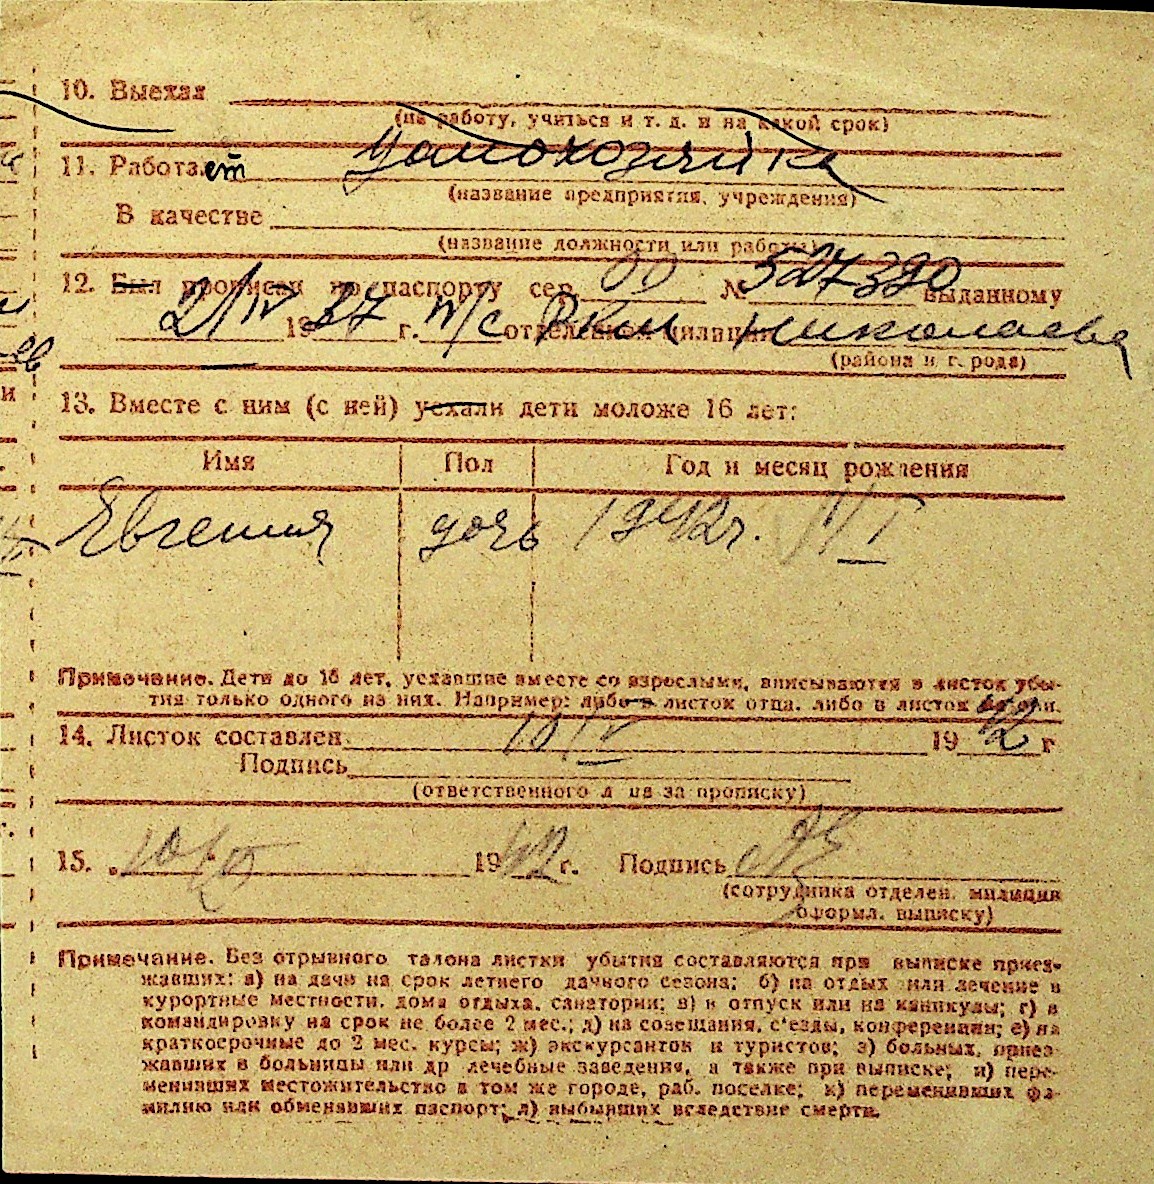 10. Выехал
(на работу, учиться и т. д. и на какой срок)
11. Работает домохозяйка
(название предприятия, учреждения)
В качестве
(название должности или работы)
12. Был прописан по паспорту сер. № 527390 выданному
21/IV 1937 г. отделением милиции Николаева
(района и города)
13. Вместе с ним (с ней) уехали дети моложе 16 лет:
Имя Пол Год и месяц рождения
Евгения дочь 1942 г. VI
Примечание. Дети до 16 лет, уехавшие вместе со взрослыми, вписываются в листок убы-
тия только одного из них. Например: либо в листок отца, либо в листок матери.
14. Листок составлен 10/IV 1942 г
Подпись
(ответственного лица за прописку)
15. „ 10/IV 1942 г. Подпись
(сотрудника отделен. милиции
оформл. выписку)
Примечание. Без отрывного талона листки убытия составляются при выписке приез-
жавших: а) на дачи на срок летнего дачного сезона; б) на отдых или лечение в
курортные местности, дома отдыха, санатории; в) в отпуск или на каникулы; г) в
командировку на срок не более 2 мес.; д) на совещания, с'езды, конференции; е) на
краткосрочные до 2 мес. курсы; ж) экскурсантов и туристов; з) больных, приез-
жавших в больницы или др лечебные заведения, а также при выписке; и) пере-
менивших местожительство в том же городе, раб. поселке; к) переменивших фа-
милию или обменявших паспорт; л) выбывших вследствие смерти.